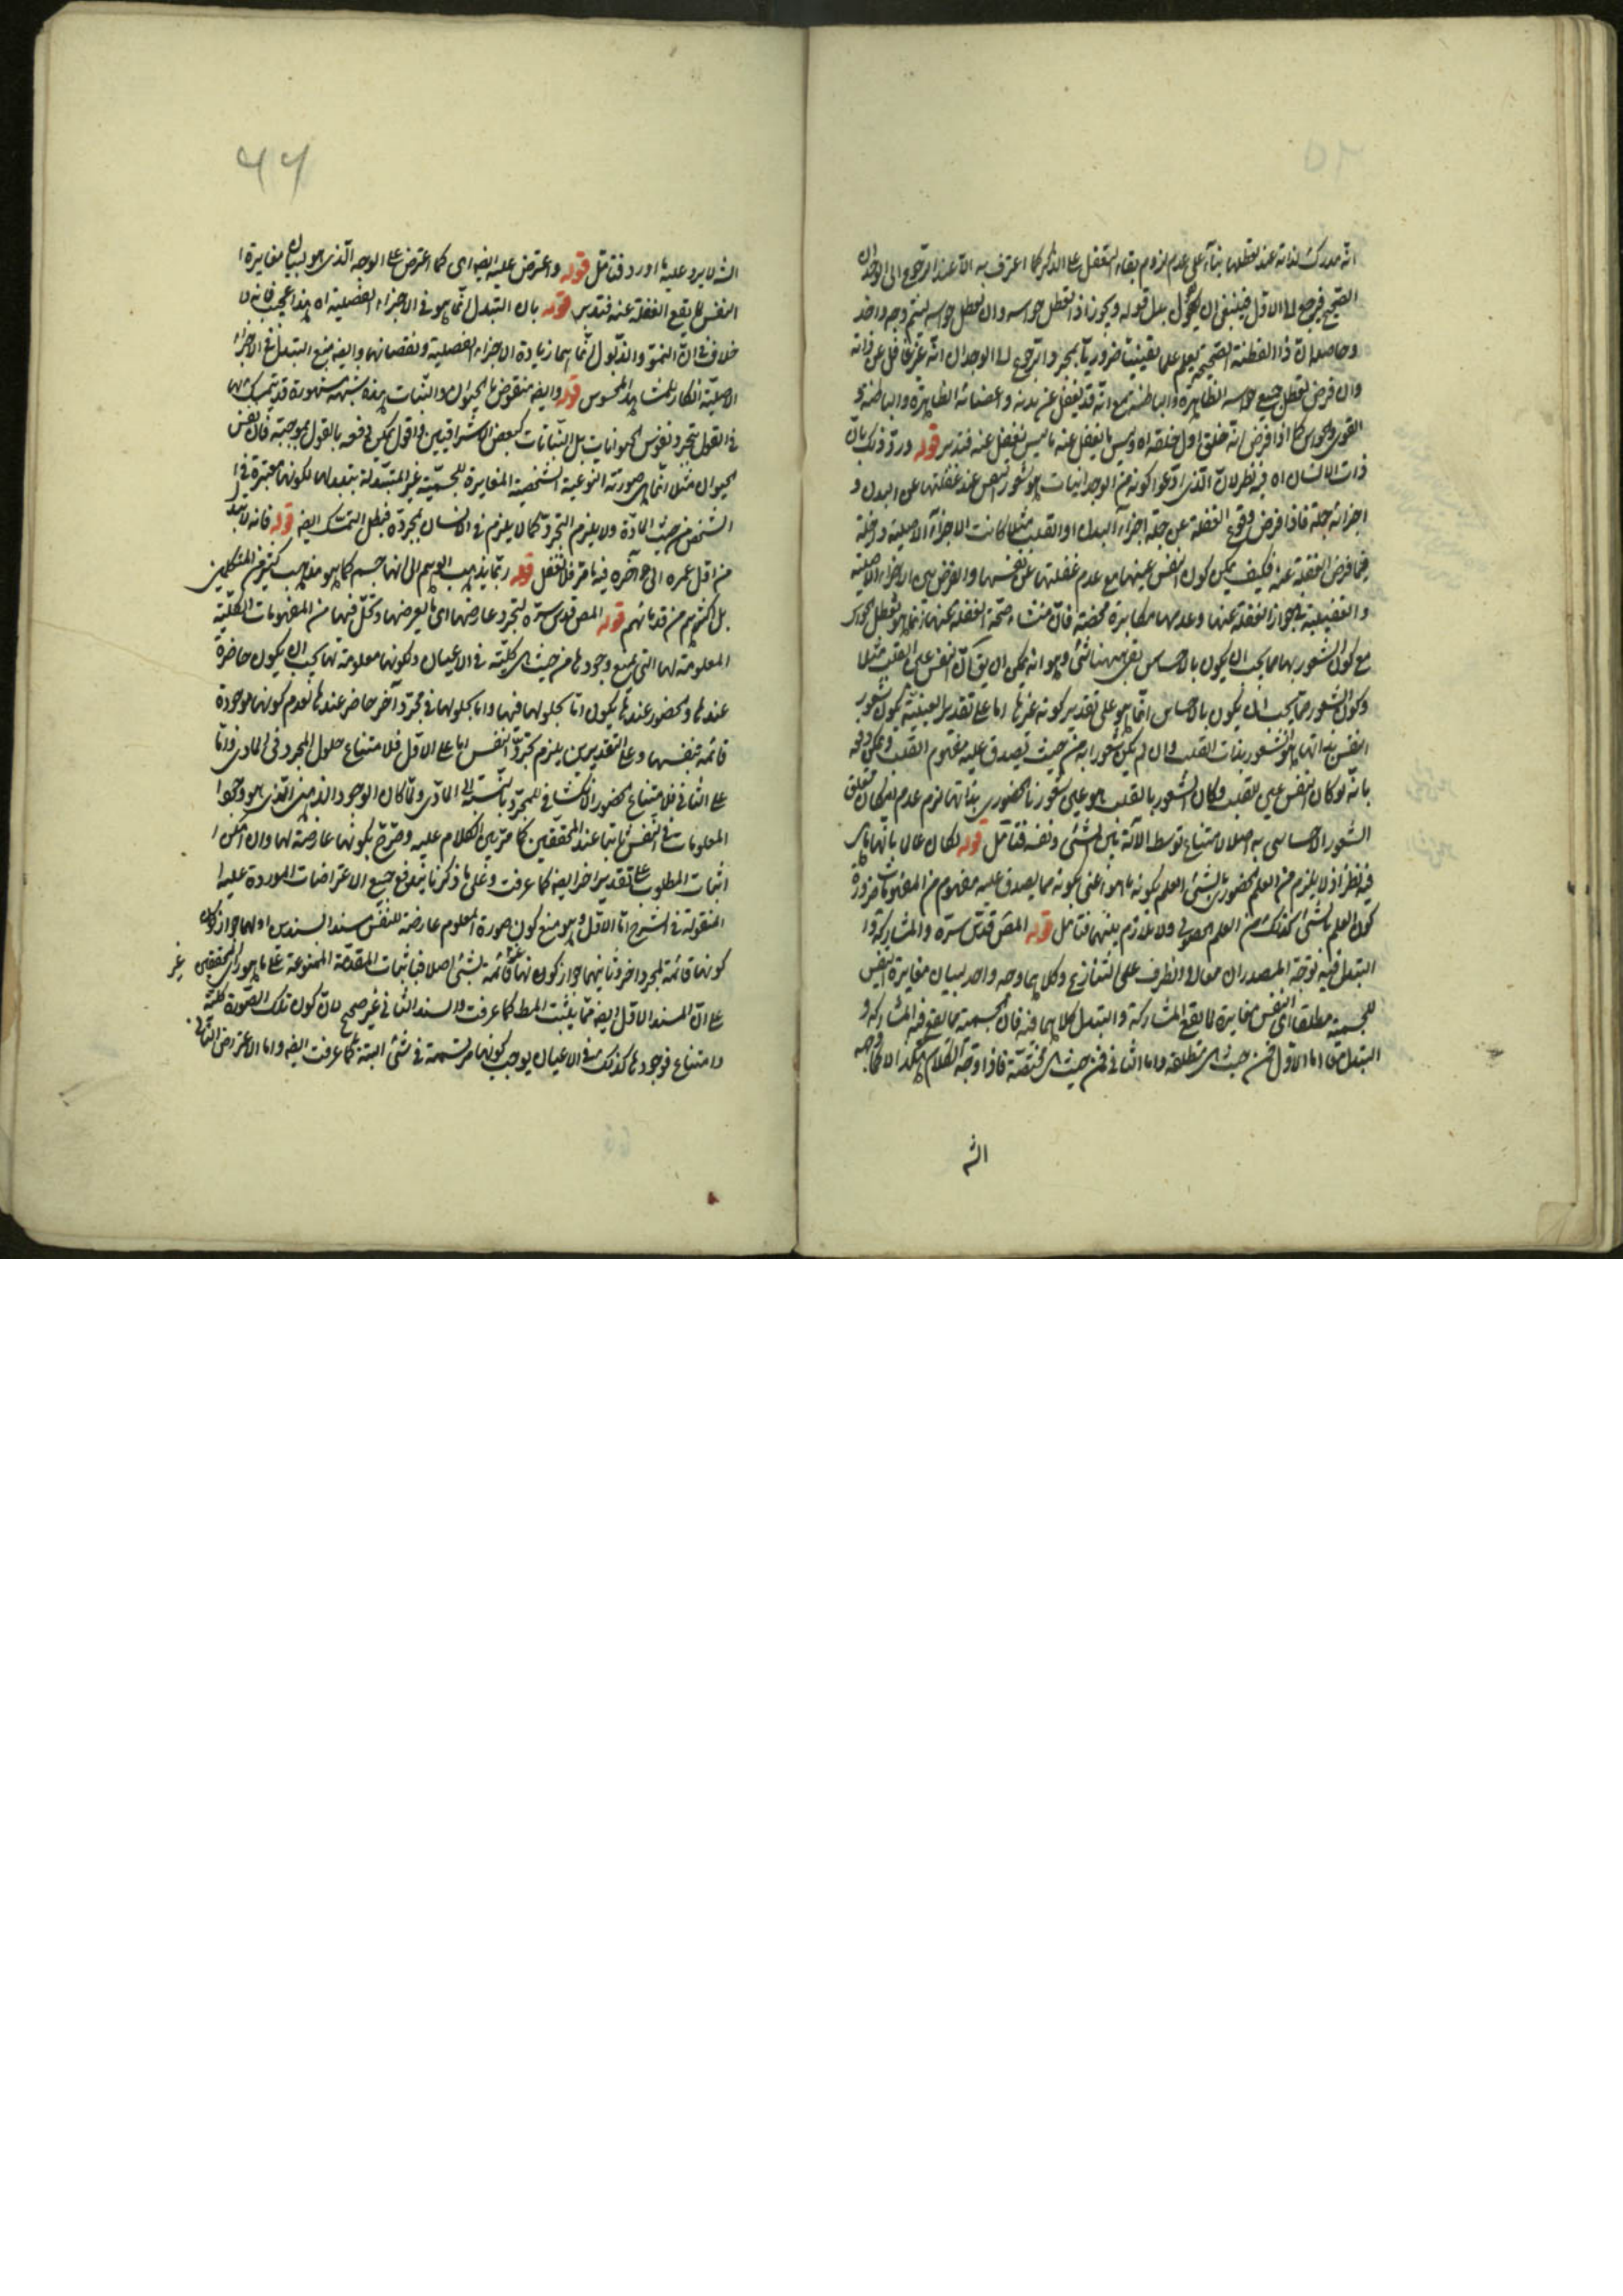 انه مدرك لذاته عند تعطلها بناء على عدم لزوم بقاء التعقل على الذكر كما اعترف به الا عند الرجوع الى الوجدان
الصحيح فيرجع الى الاول فينبغي ان يقول بدل قوله ويجوز اذ تعطل حواسه وان تعطل حواسه ليتم وجه واحد
وحاصله ان ذا الفطنة الصحيحة يعلم علما يقينيا ضروريا بمجرد الرجوع الى الوجدان انه غير غافل عن ذاته
وان فرض تعطل جميع حواسه الظاهرة والباطنة مع انه قد يغفل عن بدنه واعضائه الظاهرة والباطنة و
القوى والحواس كما اذا فرض انه خلق اول خلقه اه وليس ما يغفل عنه ما ليس يغفل عنه فتدبر قوله ورد ذلك بان
ذات الانسان اه فيه نظر لان الذي ادعوا كونه من الوجدانيات هو شعور النفس عند غفلتها عن البدن و
اجزائه جملة فاذا فرض وقوع الغفلة عن جملة اجزاء البدن او القلب مثلا كانت الاجزاء الاصلية داخلة
فيما فرض الغفلة عنه فكيف يمكن كون النفس عينها مع عدم غفلتها عن نفسها والفرض بين الاجزاء الاصلية
والفضلية بجواز الغفلة عنها وعدمها مكابرة محضة فان منشاء صحة الغفلة عنها انما هو تعطل الحواس
مع كون الشعور بها مما يجب ان يكون بالاحساس بقي ههنا شئ وهو انه يمكن ان يق ان النفس عين القلب مثلا
وكون الشعور مما يجب ان يكون بالاحساس انما هو على تقدير كونه غيرها اما على تقدير العينية يكون شعور
النفس بذاتها هو الشعور بذات القلب وان لم يكن شعورا به من حيث يصدق عليه مفهوم القلب ويمكن دفعه
بانه لو كان النفس عين القلب وكان الشعور بالقلب هو عين شعورنا الحضوري بذاتها لزم عدم امكان تعلق
الشعور الاحساسي به اصلا لامتناع توسط الآلة بين الشئ ونفسه فتامل قوله لكان عالما بانها هي
فيه نظر اذ لا يلزم من العلم الحضوري بالشئ العلم بكونه ما هو اعني بكونه مما يصدق عليه مفهوم من المفهومات ضرورة
كون العلم بالشئ كذلك من العلم الحصولي ولا تلازم بينهما فتامل قوله المص قدس سره والمشاركة و
التبدل فيه توجه المصدران معا والظرف على التنازع وكلاهما وجه واحد لبيان مغايرة النفس
للجسمية مطلقا اي النفس مغايرة لما يقع المشاركة والتبدل كلاهما فيه فان الجسمية مما يقع فيه المشاركة و
التبدل معا اما الاول فمن حيث هي مطلقة واما الثاني فمن حيث هي مختصة فاذا وجه الكلام هكذا لا
الش
٤٤
الش لا يرد عليه ما اورد فتامل قوله واعترض عليه ايضا اي كما اعترض على الوجه الذي هو لبيان مغايرة
النفس لما يقع الغفلة عنه فتدبر قوله بان التبدل انما هو في الاجزاء الفضلية اه هذا عجيب فانه لا
خلاف في ان النمو والذبول انما هما زيادة الاجزاء الفضلية ونقصانها وايضا منع التبدل في الاجزاء
الاصلية انكار للمشاهد المحسوس قوله وايضا منقوض بالحيوان والنبات هذه شبهة مشهورة قد يتمسك بها
في القول بتجرد نفوس الحيوانات بل النباتات كبعض الاشراقيين واقول يمكن دفعه بالقول بموجبه فان نفس
الحيوان مثلا انما هي صورته النوعية الشخصية المغايرة للجسمية غير المتبدلة بتبدلها لكونها معتبرة في
الشخص من حيث المادة ولا يلزم التجرد كما لا يلزم في الانسان بمجرده فبطل التمسك ايضا قوله فانه لا يتبدل
من اول عمره الى آخره فيه ما مر فلا تغفل قوله ربما يذهب الوهم الى انها جسم كما هو مذهب كثير من المتكلمين
بل اكثرهم من قدمائهم قوله المص قدس سره لتجرد عارضها اي ما يعرضها ويحل فيها من المفهومات الكلية
المعلومة لها التي يمتنع وجودها من حيث هي كلية في الاعيان ولكونها معلومة لها يجب ان يكون حاضرة
عندها والحضور عندها يكون اما بحلولها فيها واما بحلولها في مجرد آخر حاضر عندها لعدم كونها موجودة
قائمة بنفسها وعلى التقديرين يلزم تجرد النفس اما على الاول فلامتناع حلول المجرد في المادي واما
على الثاني فلامتناع الحضور الانكشافي للمجرد بالنسبة الى المادي ولما كان الوجود الذهني الذي هو وجود
المعلومات في النفس ثابتا عند المحققين كما مر بين الكلام عليه وصرح بكونها عارضة لها وان امكن
اثبات المطلوب على تقدير آخر ايضا كما عرفت وعلى ما ذكرنا يندفع جميع الاعتراضات الموردة عليه
المنقولة في الشرح اما الاول وهو منع كون صورة المعلوم عارضة للنفس مسندا لسندين اولهما جواز كون
كونها قائمة بمجرد آخر وثانيهما جواز كونها غير قائمة بشئ اصلا فباثبات المقدمة الممنوعة على ما هو رأي المحققين غير
على ان السند الاول ايضا مما يثبت المط كما عرفت والسند الثاني غير صحيح لان كون تلك الصورة كلية
وامتناع وجودها كذلك في الاعيان يوجب كونها مرتسمة في شئ البتة كما عرفت ايضا واما الاعتراض الثاني